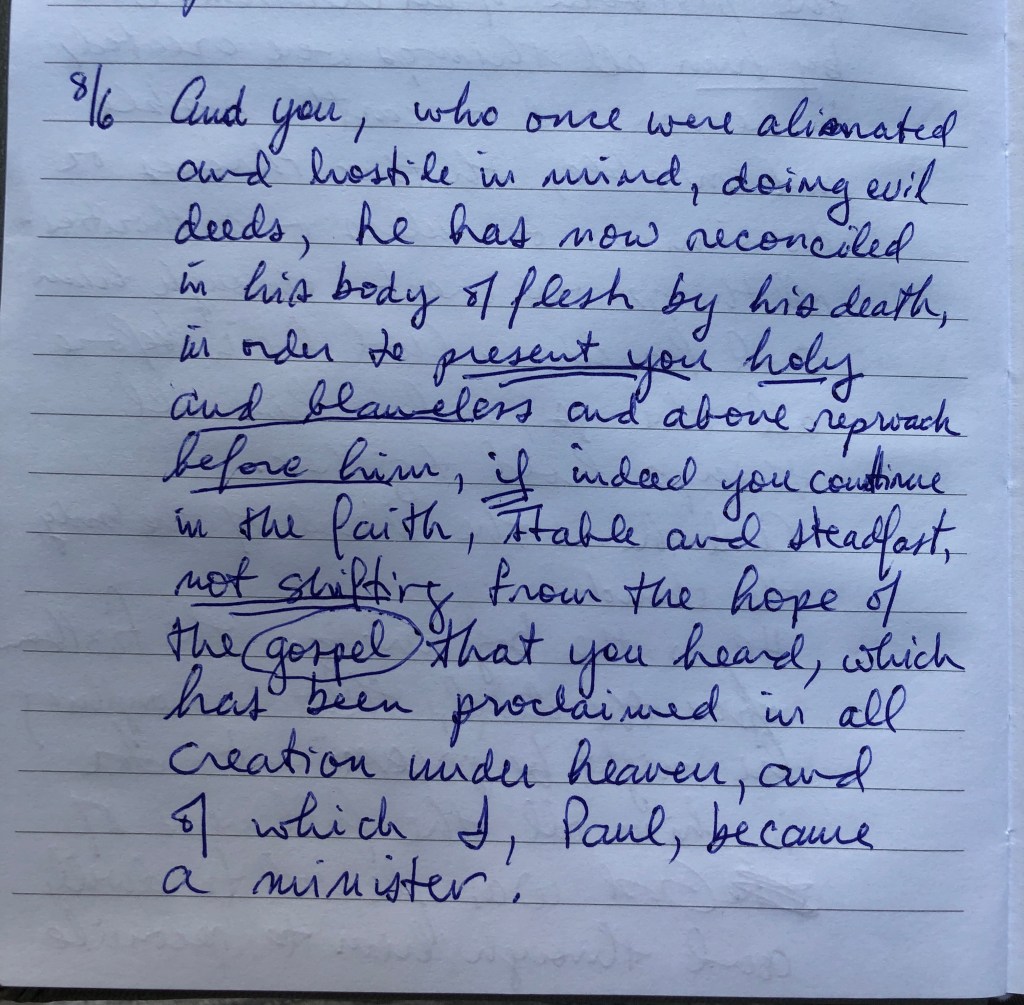 8/6 And you, who once were alienated
and hostile in mind, doing evil
deeds, he has now reconciled
in his body of flesh by his death,
in order to present you holy
and blameless and above reproach
before him, if indeed you continue
in the faith, stable and steadfast,
not shifting from the hope of
the gospel that you heard, which
has been proclaimed in all
creation under heaven, and
of which I, Paul, became
a minister.